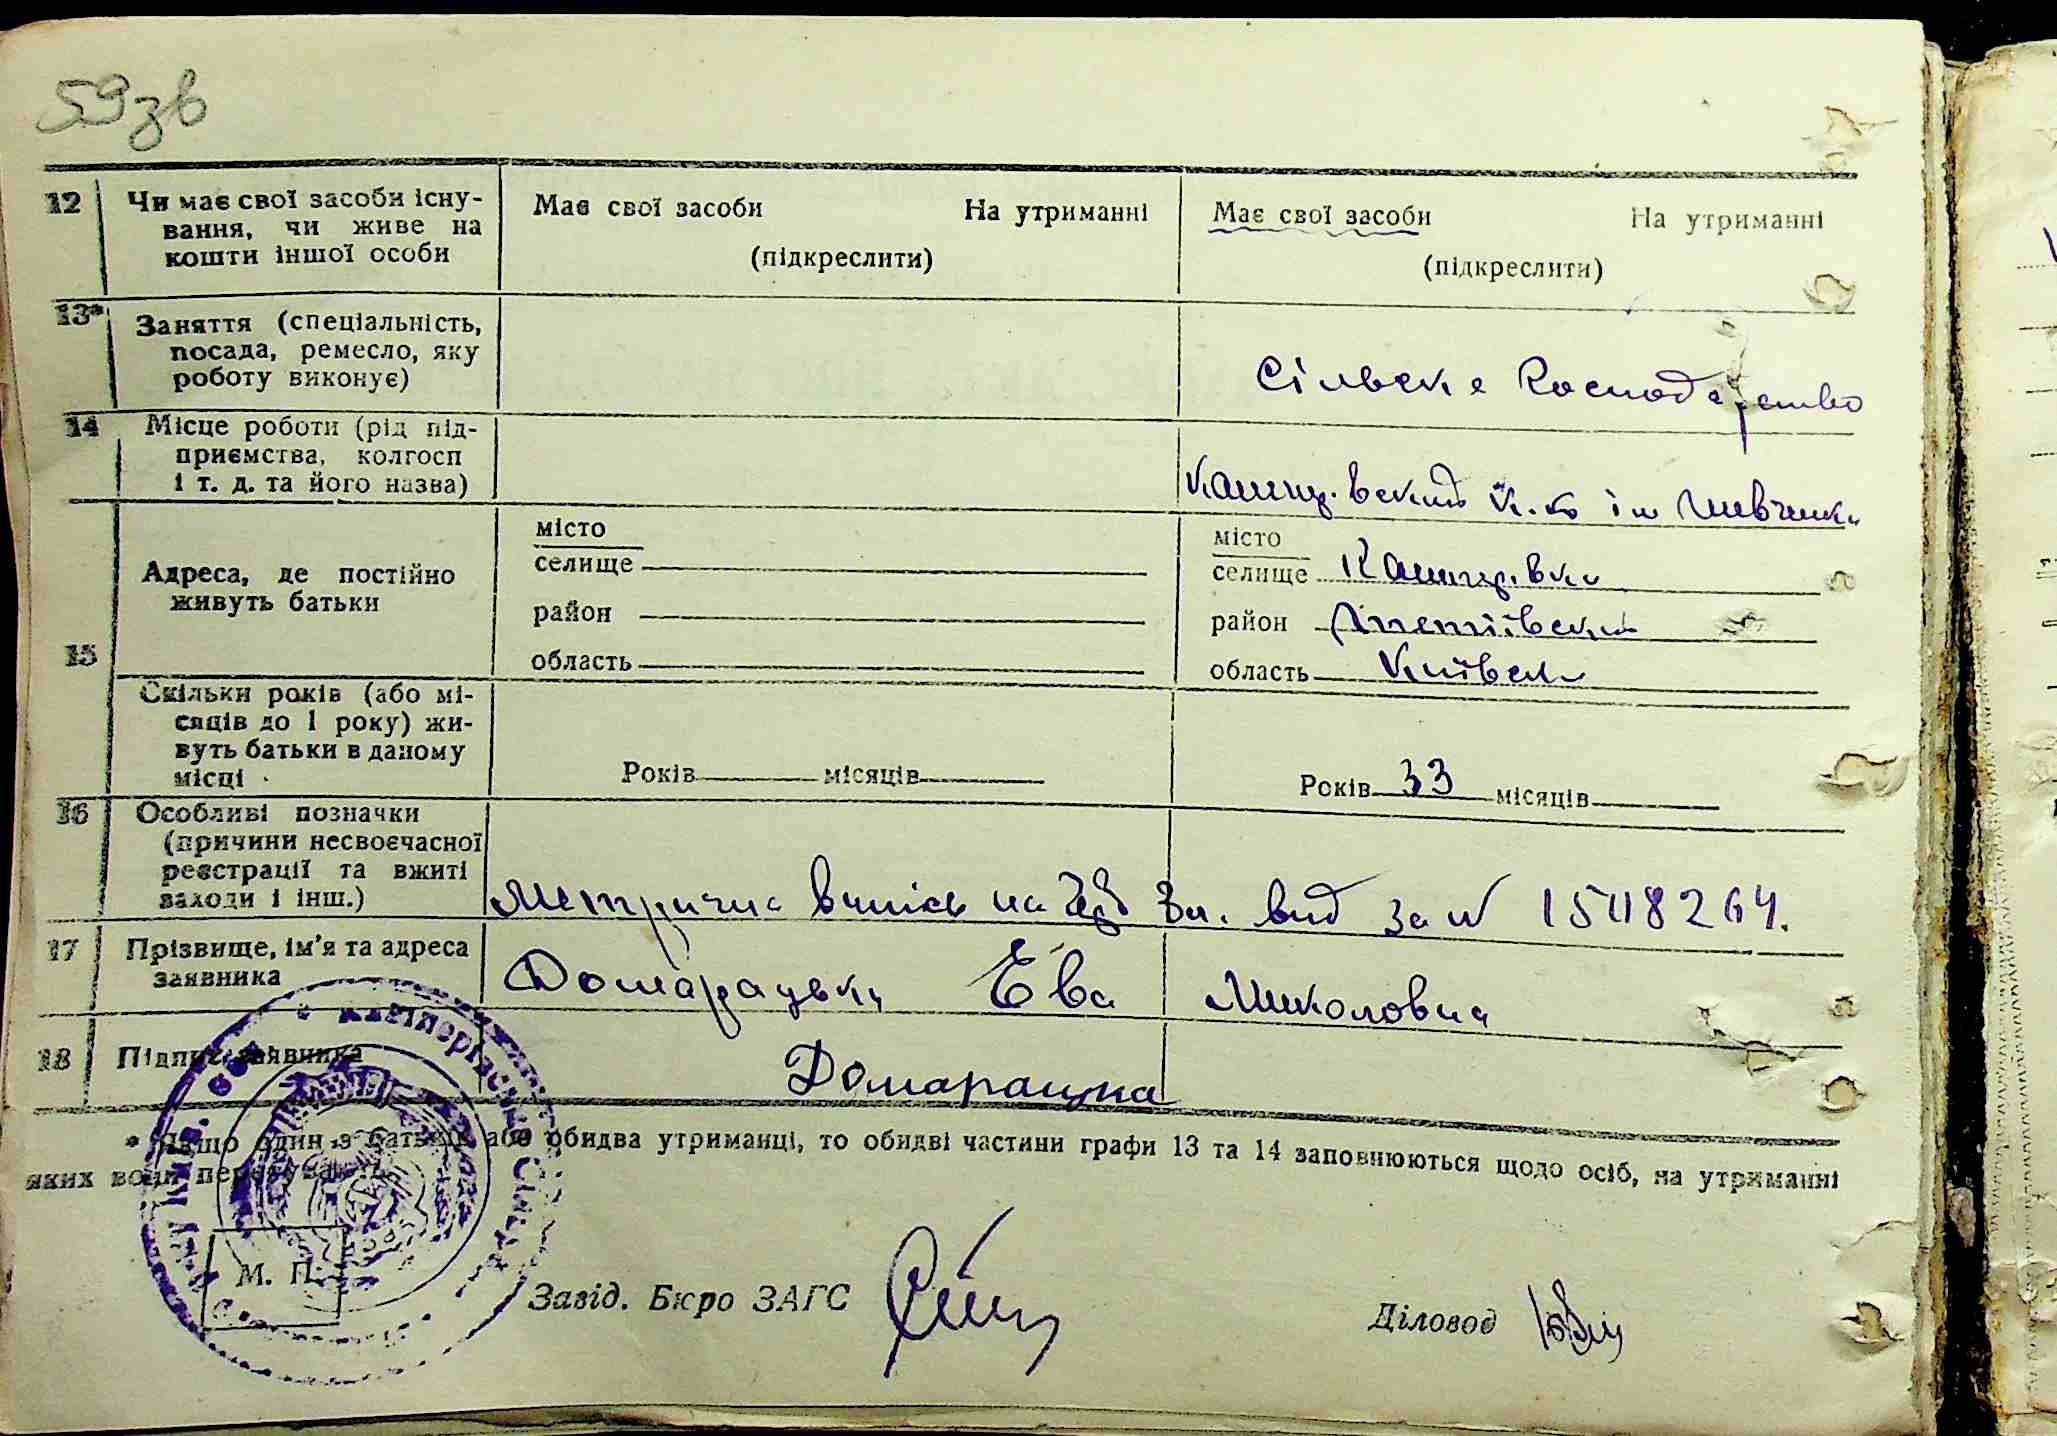 59зв
12 Чи має свої засоби існу-
вання, чи живе на
кошти іншої особи
Має свої засоби На утриманні
(підкреслити)
Має свої засоби На утриманні
(підкреслити)
13* Заняття (спеціальність,
посада, ремесло, яку
роботу виконує)
Сільське Господарство
14 Місце роботи (рід під-
приємства, колгосп
і т. д. та його назва)
ім Шевченка
15 Адреса, де постійно
живуть батьки
місто
селище
район
область
місто
селище
район
область Київськ
Скільки років (або мі-
сяців до 1 року) жи-
вуть батьки в даному
місці
Років місяців
Років 33 місяців
16 Особливі позначки
(причини несвоєчасної
реєстрації та вжиті
заходи і інш.)
Метрична випись на вид за №
17 Прізвище, ім'я та адреса
заявника
Домарацька Ева Миколовна
18 Підпис заявника
Домарацка
* Якщо один з батьків або обидва утриманці, то обидві частини графи 13 та 14 заповнюються щодо осіб, на утриманні
яких вони перебувають.
М. П.
Завід. Бюро ЗАГС
Діловод